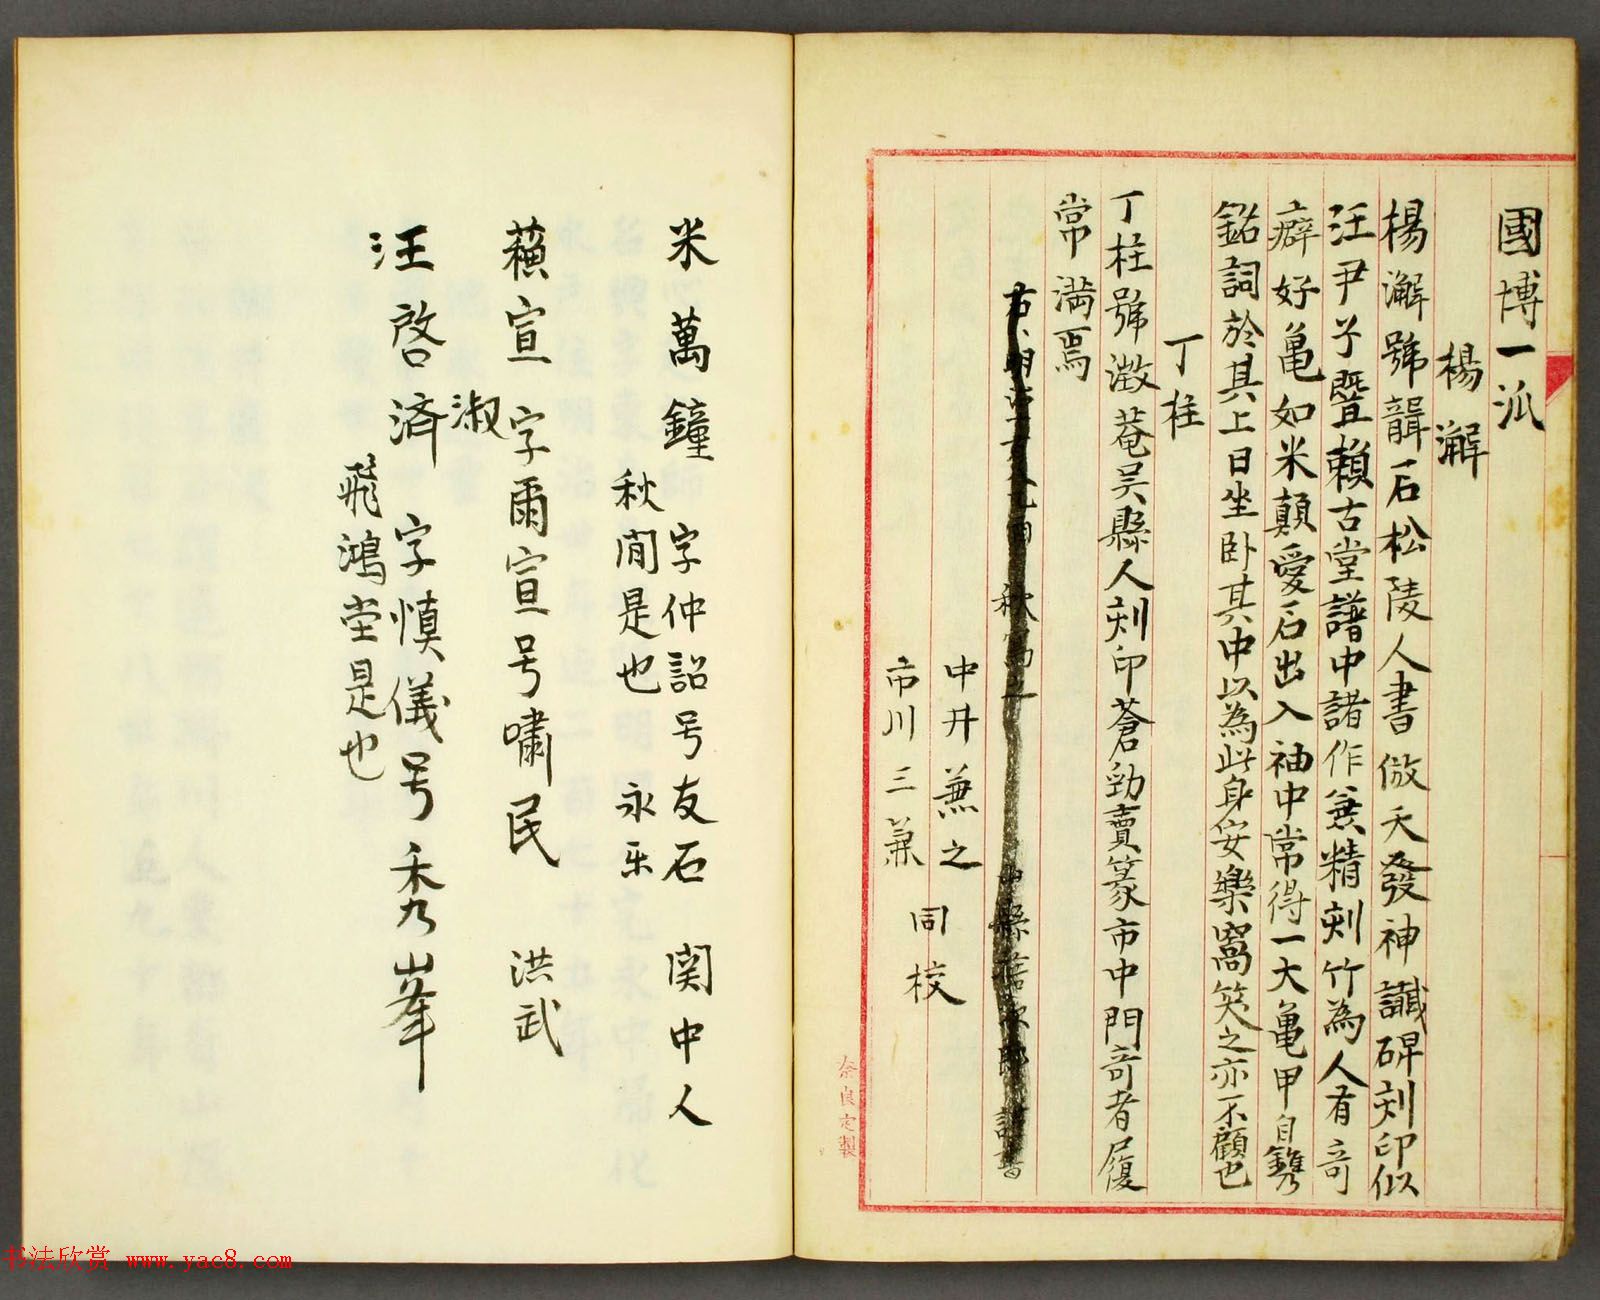 國博一派
楊澥
楊澥號聾石松陵人書倣天發神讖碑刻印似
汪尹子暨賴古堂譜中諸作兼精刻竹為人有奇
癖好亀如米顛愛石出入袖中常得一大亀甲自鐫
銘詞於其上日坐卧其中以為此身安樂窩笑之亦不顧也
丁柱
丁柱號澂菴吴縣人刻印蒼勁賣篆市中門奇者屨
常満焉
中井兼之
市川三兼
同校
奈良定製
米萬鐘 字仲詔号友石 関中人
秋閒是也 永乐
蘓宣 字爾宣号嘯民 洪武
淑
汪啓済 字慎儀号秀峯
飛鴻堂是也
书法欣赏 www.yac8.com